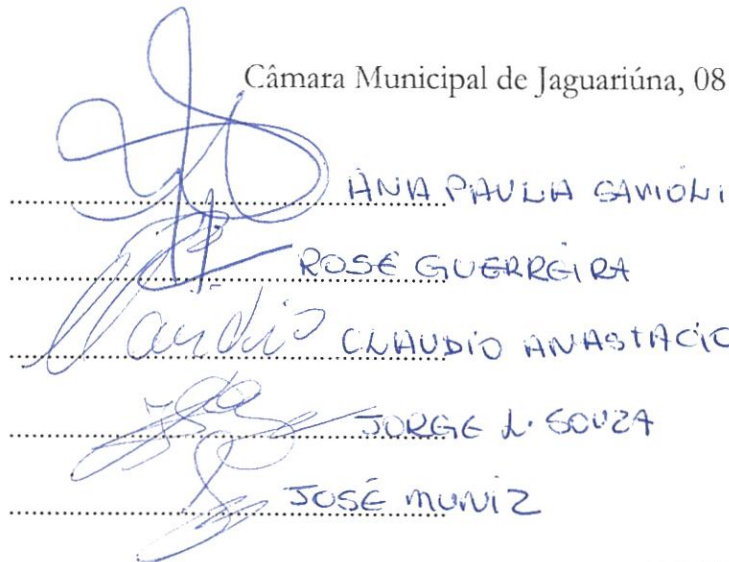 Câmara Municipal de Jaguariúna, 08
ANA PAULA
ROSE GUERREIRA
Claudio CLAUDIO ANASTACIO
JORGE L. SOUZA
JOSÉ MUNIZ